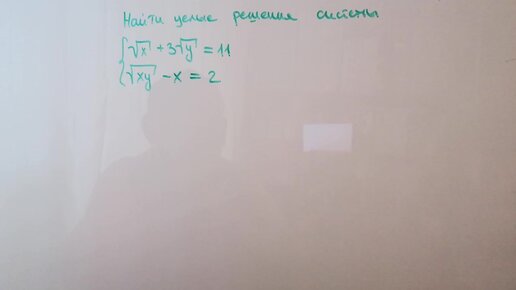 Найти целые решения системы
{√x + 3√y = 11
{√xy - x = 2